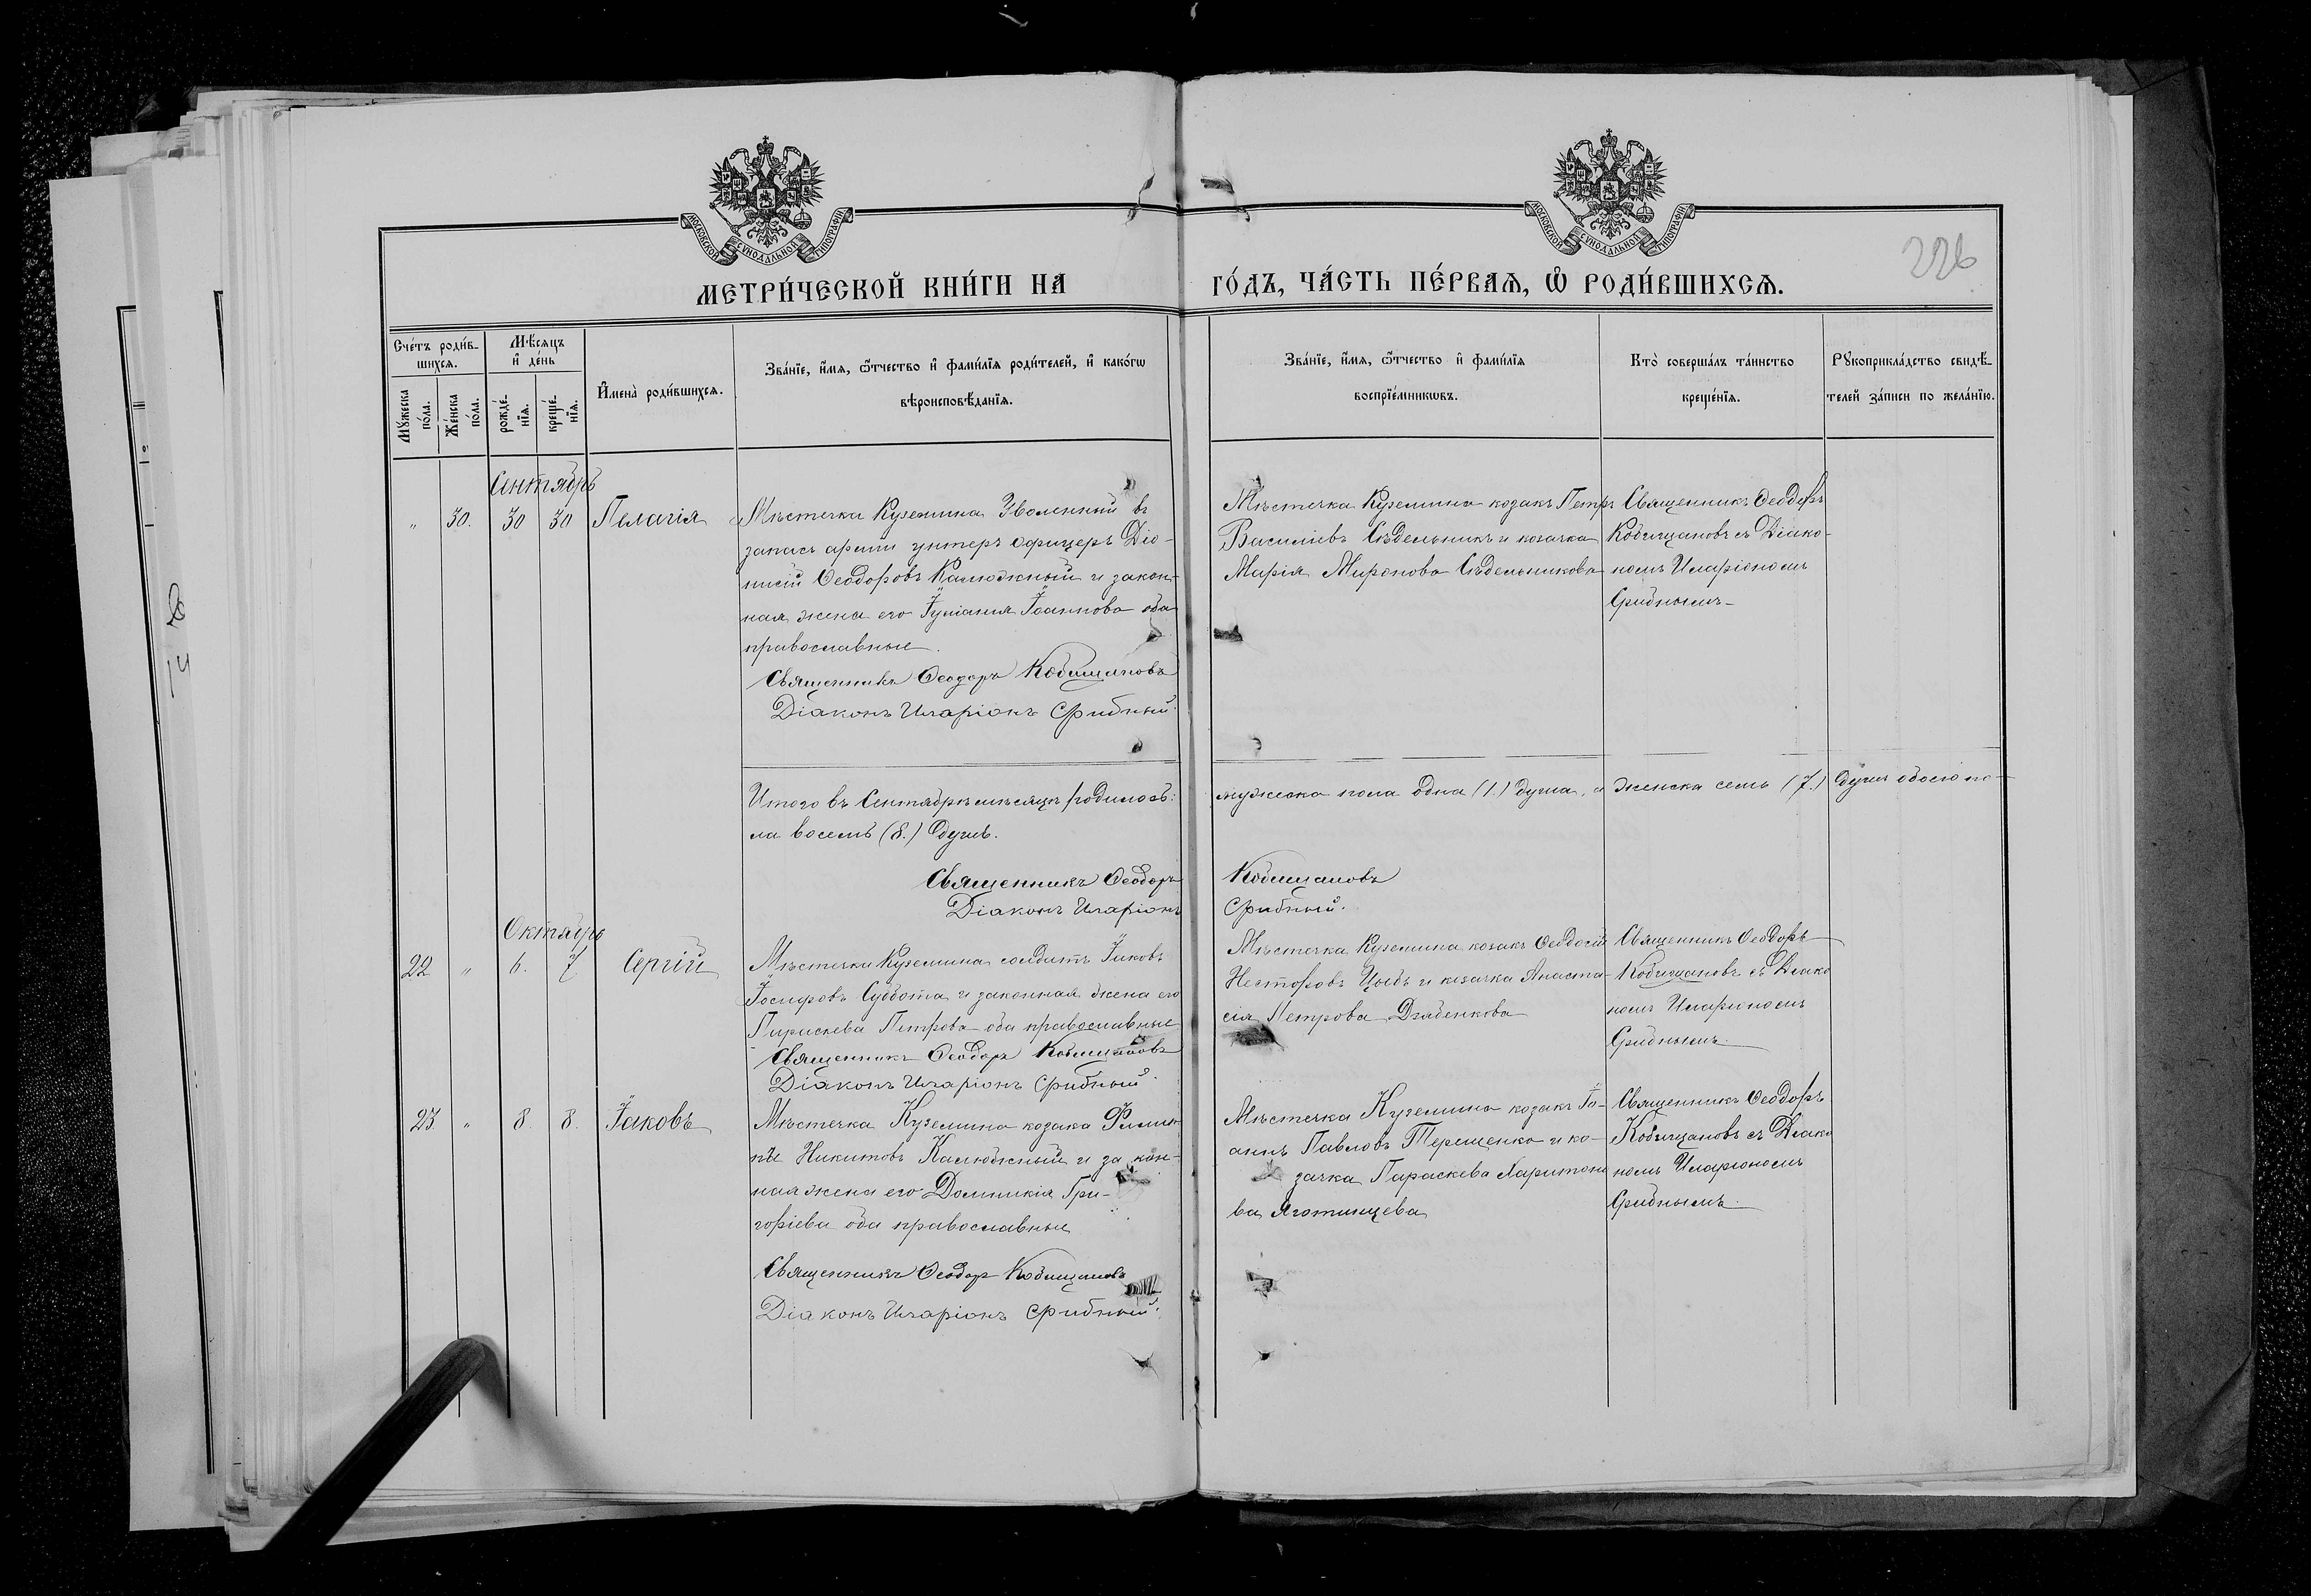 МОСКОВСКОЙ СУНОДАЛЬНОЙ ТИПОГРАФІИ
МОСКОВСКОЙ СУНОДАЛЬНОЙ ТИПОГРАФІИ
226
МЕТРИ́ЧЕСКОЙ КНИ́ГИ НА ГО́ДЪ, ЧА́СТЬ ПЕ́РВАѦ, Ѽ РОДИ́ВШИХСѦ.
Сче́тъ роди́в-
шихся.
Мꙋжеска по́ла.
Же́нска по́ла.
Мѣ́сяцъ и҆ де́нь
рожде́-
нїя.
креще́-
нїя.
И҆мена̀ роди́вшихся.
Зва́нїе, и҆́мя, ѻ҆́тчество и҆ фами́лїя роди́телей, и҆ како́гѡ
вѣроисповѣ́данїя.
Зва́нїе, и҆́мя, ѻ҆́тчество и҆ фами́лїя
воспрїе́мникѡвъ.
Кто̀ соверша́лъ та́инство
креще́нїя.
Рꙋкоприкла́дство свидѣ́-
телей за́писи по жела́нїю.
Сентябрь
" 30. 30 30 Пелагія
Мѣстечка Куземина Уволенный въ
запасъ арміи унтеръ офицеръ Діо-
нисій Ѳеодоровъ Калюжный и закон-
ная жена его Іуліанія Іоаннова оба
православные.
Священникъ Ѳеодоръ Кобищановъ
Діаконъ Иларіонъ Срибный.
Мѣстечка Куземина козакъ Петръ
Василіевъ Сѣдельникъ и козачка
Марія Миронова Сѣдельникова
Священникъ Ѳеодоръ
Кобищановъ съ Діако-
номъ Иларіономъ
Срибнымъ
Итого въ Сентябрѣ мѣсяцѣ родилось: мужеска пола одна (1.) душа, а женска семь (7.) душъ обоего по-
ла восемь (8.) душъ.
Священникъ Ѳеодоръ Кобищановъ
Діаконъ Иларіонъ Срибный.
Октябрь
22 " 6. 7 Сергій
Мѣстечка Куземина солдатъ Іаковъ
Іосифовъ Суббота и законная жена его
Параскева Петрова оба православные
Священникъ Ѳеодоръ Кобищановъ
Діаконъ Иларіонъ Срибный.
Мѣстечка Куземина козакъ Ѳеодосій
Несторовъ Цыбъ и козачка Анаста-
сія Петрова Дзябенкова
Священникъ Ѳеодоръ
Кобищановъ съ Діако
номъ Иларіономъ
Срибнымъ.
23. " 8. 8. Іаковъ
Мѣстечка Куземина козака Филип-
пъ Никитовъ Калюжный и закон-
ная жена его Домникія Гри-
горіева оба православные
Священникъ Ѳеодоръ Кобищановъ
Діаконъ Иларіонъ Срибный.
Мѣстечка Куземина козакъ Іо-
аннъ Павловъ Терещенко и ко-
зачка Параскева Харитоно
ва Яготинцева
Священникъ Ѳеодоръ
Кобищановъ съ Діако
номъ Иларіономъ
Срибнымъ.